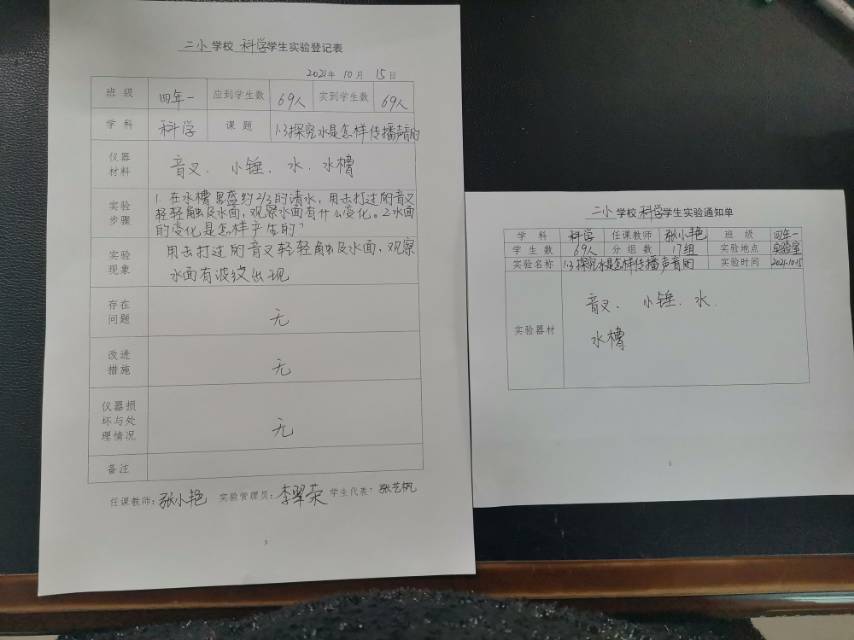 二小学校 科学学生实验登记表
2021年 10 月 15 日
班 级 四年一 应到学生数 69人 实到学生数 69人
学 科 科学 课 题 1.3探究水是怎样传播声音的
仪器材料 音叉、小锤、水、水槽
实验步骤 1、在水槽里盛约2/3的清水,用击打过的音叉
轻轻触及水面,观察水面有什么变化。2水面
的变化是怎样产生的?
实验现象 用击打过的音叉轻轻触及水面,观察
水面有波纹出现
存在问题 无
改进措施 无
仪器损坏与处理情况 无
备注
任课教师:张小艳 实验管理员:李翠荣 学生代表:张艺帆
二小学校科学学生实验通知单
学 科 科学 任课教师 张小艳 班 级 四年一
学 生 数 69人 分 组 数 17组 实验地点 实验室
实验名称 1.3探究水是怎样传播声音的 实验时间 2021.10.15
实验器材 音叉、小锤、水、
水槽